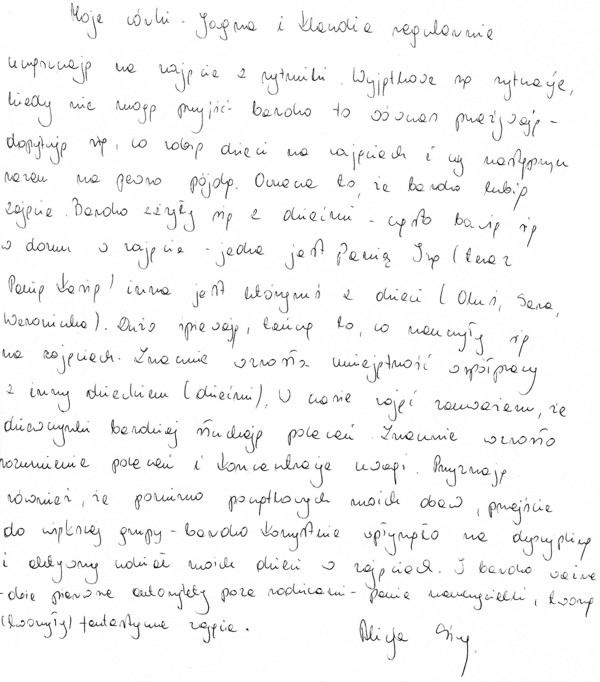 Moje córki - Jagna i Klaudia regularnie
uczęszczają na zajęcia z rytmiki. Wyjątkowe są sytuacje,
kiedy nie mogą przyjść - bardzo to wówczas przeżywają -
dopytują się, co robią dzieci na zajęciach i czy następnym
razem na pewno pójdą. Oznacza to, że bardzo lubią
zajęcia. Bardzo zżyły się z dziećmi - często bawią się
w domu w zajęcia - jedna jest Panią Izą (teraz
Panią Kasią) inna jest którymś z dzieci (Oluś, Sara,
Weroniczka). Dużo śpiewają, tańczą to, co nauczyły się
na zajęciach. Znacznie wzrosła umiejętność współpracy
z innym dzieckiem (dziećmi). W czasie zajęć zauważam, że
dziewczynki bardziej słuchają poleceń. Znacznie wzrosło
rozumienie poleceń i koncentracja uwagi. Przyznaję
również, że pomimo początkowych moich obaw, przejście
do większej grupy - bardzo korzystnie wpłynęło na dyscyplinę
i aktywny udział moich dzieci w zajęciach. I bardzo ważne
- dwie pierwsze autorytety poza rodzicami - panie nauczycielki, tworzą
(tworzyły) fantastyczne zajęcia.
Alicja